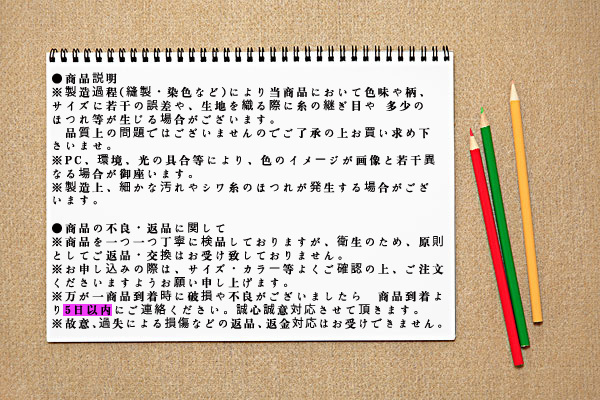 ●商品説明
※製造過程(縫製・染色など)により当商品において色味や柄、
サイズに若干の誤差や、生地を織る際に糸の継ぎ目や 多少の
ほつれ等が生じる場合がございます。
　品質上の問題ではございませんのでご了承の上お買い求め下
さいませ。
※PC、環境、光の具合等により、色のイメージが画像と若干異
なる場合が御座います。
※製造上、細かな汚れやシワ糸のほつれが発生する場合がござ
います。
●商品の不良・返品に関して
※商品を一つ一つ丁寧に検品しておりますが、衛生のため、原則
としてご返品・交換はお受け致しておりません。
※お申し込みの際は、サイズ・カラー等よくご確認の上、ご注文
くださいますようお願い申し上げます。
※万が一商品到着時に破損や不良がございましたら　商品到着よ
り5日以内にご連絡ください。誠心誠意対応させて頂きます。
※故意、過失による損傷などの返品、返金対応はお受けできません。